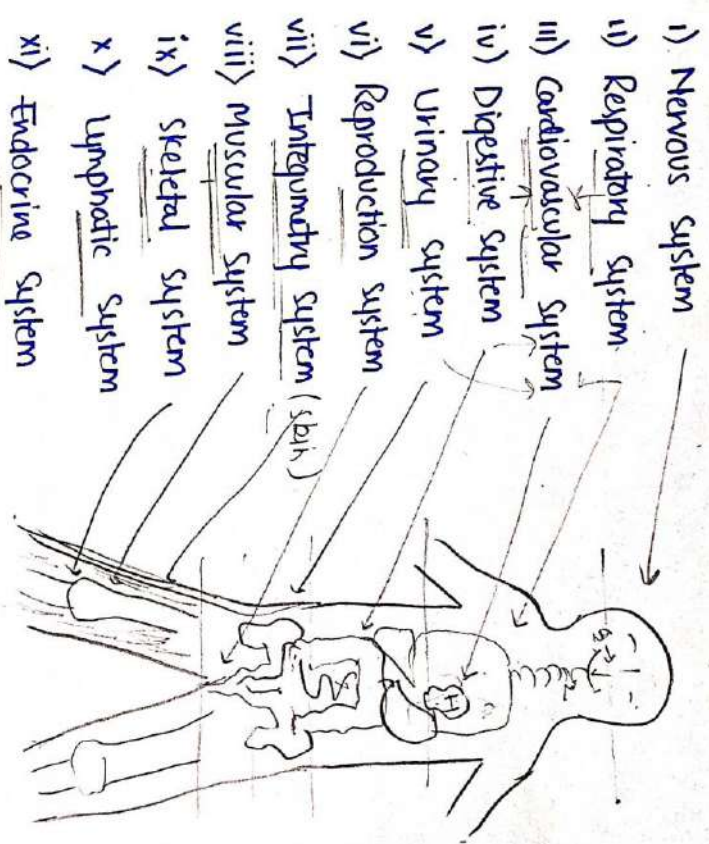 i) Nervous System
ii) Respiratory System
iii) Cardiovascular System
iv) Digestive System
v) Urinary System
vi) Reproduction System
vii) Integumetry System (skin)
viii) Muscular System
ix) Skeletal System
x) Lymphatic System
xi) Endocrine System
H